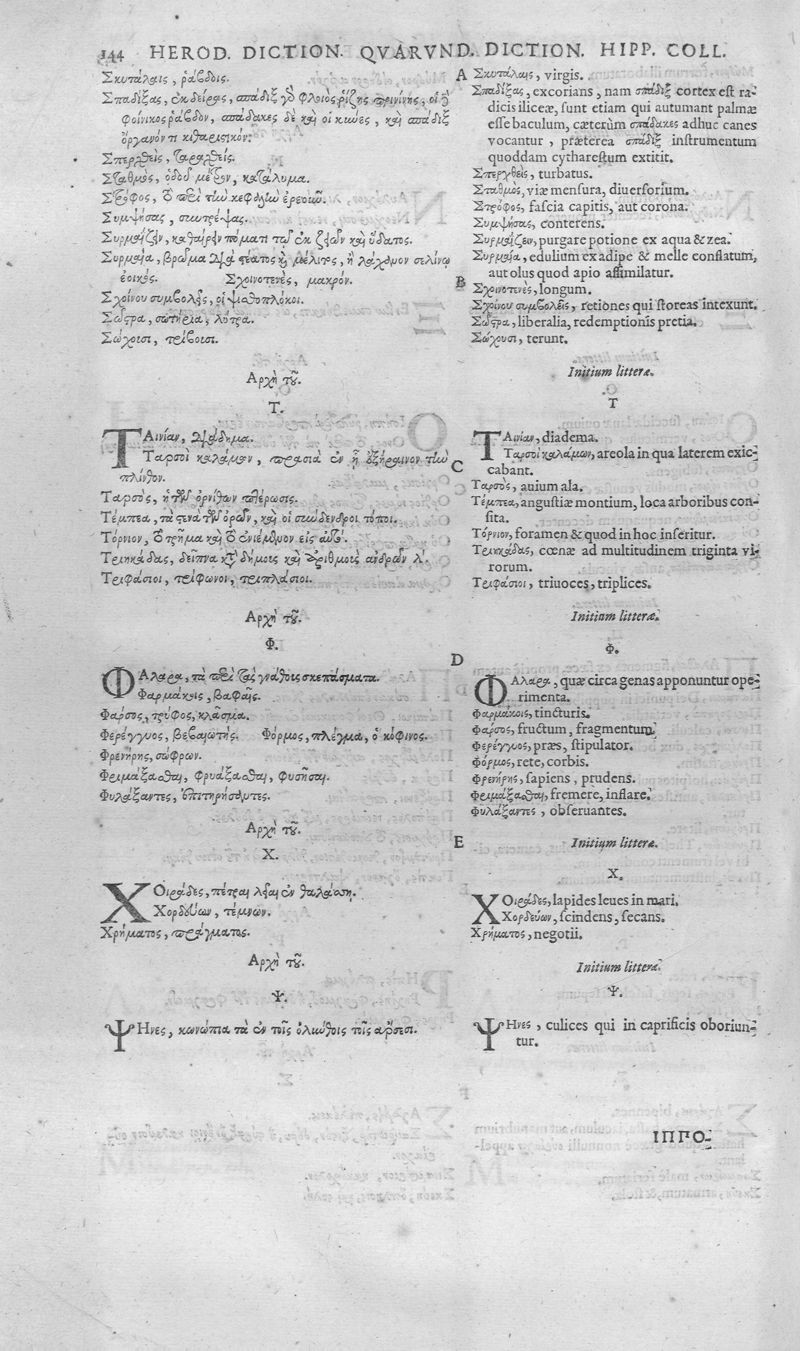 144 HEROD. DICTION. QVARVND. DICTION. HIPP. COLL.
Σκυτάλαις, ῥάβδοις.
Σπαδίξας, ἐκδείρας, σπάδιξ γὸ φλοιὸς ῥίζης πρινίνης, οἱ ἢ
φοίνικος ῥάβδον, σπάδακες δὲ καὶ οἱ κύνες, καὶ σπάδιξ
ὄργανόν τι κιθαριστικόν.
Σπερχθεὶς, ταραχθείς.
Σταθμὸς, ὁδοῦ μέτρον, κατάλυμα.
Στρόφος, τὸ περὶ τὴν κεφαλὴν ἐρεοῦν.
Συμψήσας, συντρίψας.
Συρμαΐζειν, καθαίρειν πόματι τῷ ἐκ ζειῶν καὶ ὕδατος.
Συρμαία, βρῶμα διὰ στέατος καὶ μέλιτος, ἢ λάχανον σελίνῳ
ἐοικός. Σχοινοτενὲς, μακρόν.
Σχοίνου συμβολεῖς, οἱ ψιαθοπλόκοι.
Σῶστρα, σωτήρια, λύτρα.
Σώχουσι, τρίβουσι.
Αρχὴ τοῦ.
Τ.
ΤΑινίαν, διάδημα.
Ταρσοὶ καλάμων, πρασιὰ ἐν ᾗ ἐξήραινον τὴν
πλίνθον.
Ταρσὸς, ἡ τῶν ὀρνίθων πτέρωσις.
Τέμπεα, τὰ στενὰ τῶν ὀρῶν, καὶ οἱ σύνδενδροι τόποι.
Τόρνιον, τὸ τρῆμα καὶ τὸ ἐνιέμενον εἰς αὐτό.
Τριηκάδας, δεῖπνα κατὰ δήμους καὶ ἀριθμοὺς ἀνδρῶν λ΄.
Τριφάσιοι, τρίφωνοι, τριπλάσιοι.
Αρχὴ τοῦ.
Φ.
ΦΑλαρα, τὰ περὶ τὰς γνάθοις σκεπάσματα.
Φαρμάκοις, βαφαῖς.
Φάρσος, τρύφος, κλάσμα.
Φερέγγυος, βεβαιωτής. Φόρμος, πλέγμα, ὁ κόφινος.
Φρενήρης, σώφρων.
Φριμάξασθαι, φρυάξασθαι, φυσῆσαι.
Φυλάξαντες, ἐπιτηρήσαντες.
Αρχὴ τοῦ.
Χ.
ΧΟιράδες, πέτραι λεῖαι ἐν θαλάσσῃ.
Χορδεύων, τέμνων.
Χρήματος, πράγματος.
Αρχὴ τοῦ.
Ψ.
ΨΗνες, κωνώπια τὰ ἐν τοῖς ὀλύνθοις τοῖς ἄρσεσι.
A Σκυτάλαις, virgis.
Σπαδίξας, excorians, nam σπάδιξ cortex est ra-
dicis iliceæ, sunt etiam qui autumant palmæ
esse baculum, cæterùm σπάδακες adhuc canes
vocantur, præterea σπάδιξ instrumentum
quoddam cytharestum extitit.
Σπερχθεὶς, turbatus.
Σταθμὸς, viæ mensura, diuersorium.
Στρόφος, fascia capitis, aut corona.
Συμψήσας, conterens.
Συρμαΐζειν, purgare potione ex aqua & zea.
Συρμαία, edulium ex adipe & melle conflatum,
aut olus quod apio assimilatur.
B Σχοινοτενὲς, longum.
Σχοίνου συμβολεῖς, retiones qui storeas intexunt.
Σῶστρα, liberalia, redemptionis pretia.
Σώχουσι, terunt.
Initium litteræ.
T
ΤΑινίαν, diadema.
Ταρσοὶ καλάμων, areola in qua laterem exic-
C cabant.
Ταρσὸς, auium ala.
Τέμπεα, angustiæ montium, loca arboribus con-
sita.
Τόρνιον, foramen & quod in hoc inseritur.
Τριηκάδας, cœnæ ad multitudinem triginta vi-
rorum.
Τριφάσιοι, triuoces, triplices.
Initium litteræ.
Φ.
D
ΦΑλαρα, quæ circa genas apponuntur ope-
rimenta.
Φαρμάκοις, tincturis.
Φάρσος, fructum, fragmentum.
Φερέγγυος, præs, stipulator.
Φόρμος, rete, corbis.
Φρενήρης, sapiens, prudens.
Φριμάξασθαι, fremere, inflare.
Φυλάξαντες, obseruantes.
E Initium litteræ.
X.
ΧΟιράδες, lapides leues in mari.
Χορδεύων, scindens, secans.
Χρήματος, negotii.
Initium litteræ.
Ψ.
ΨΗνες, culices qui in caprificis oboriun-
tur.
ΙΠΠΟ-